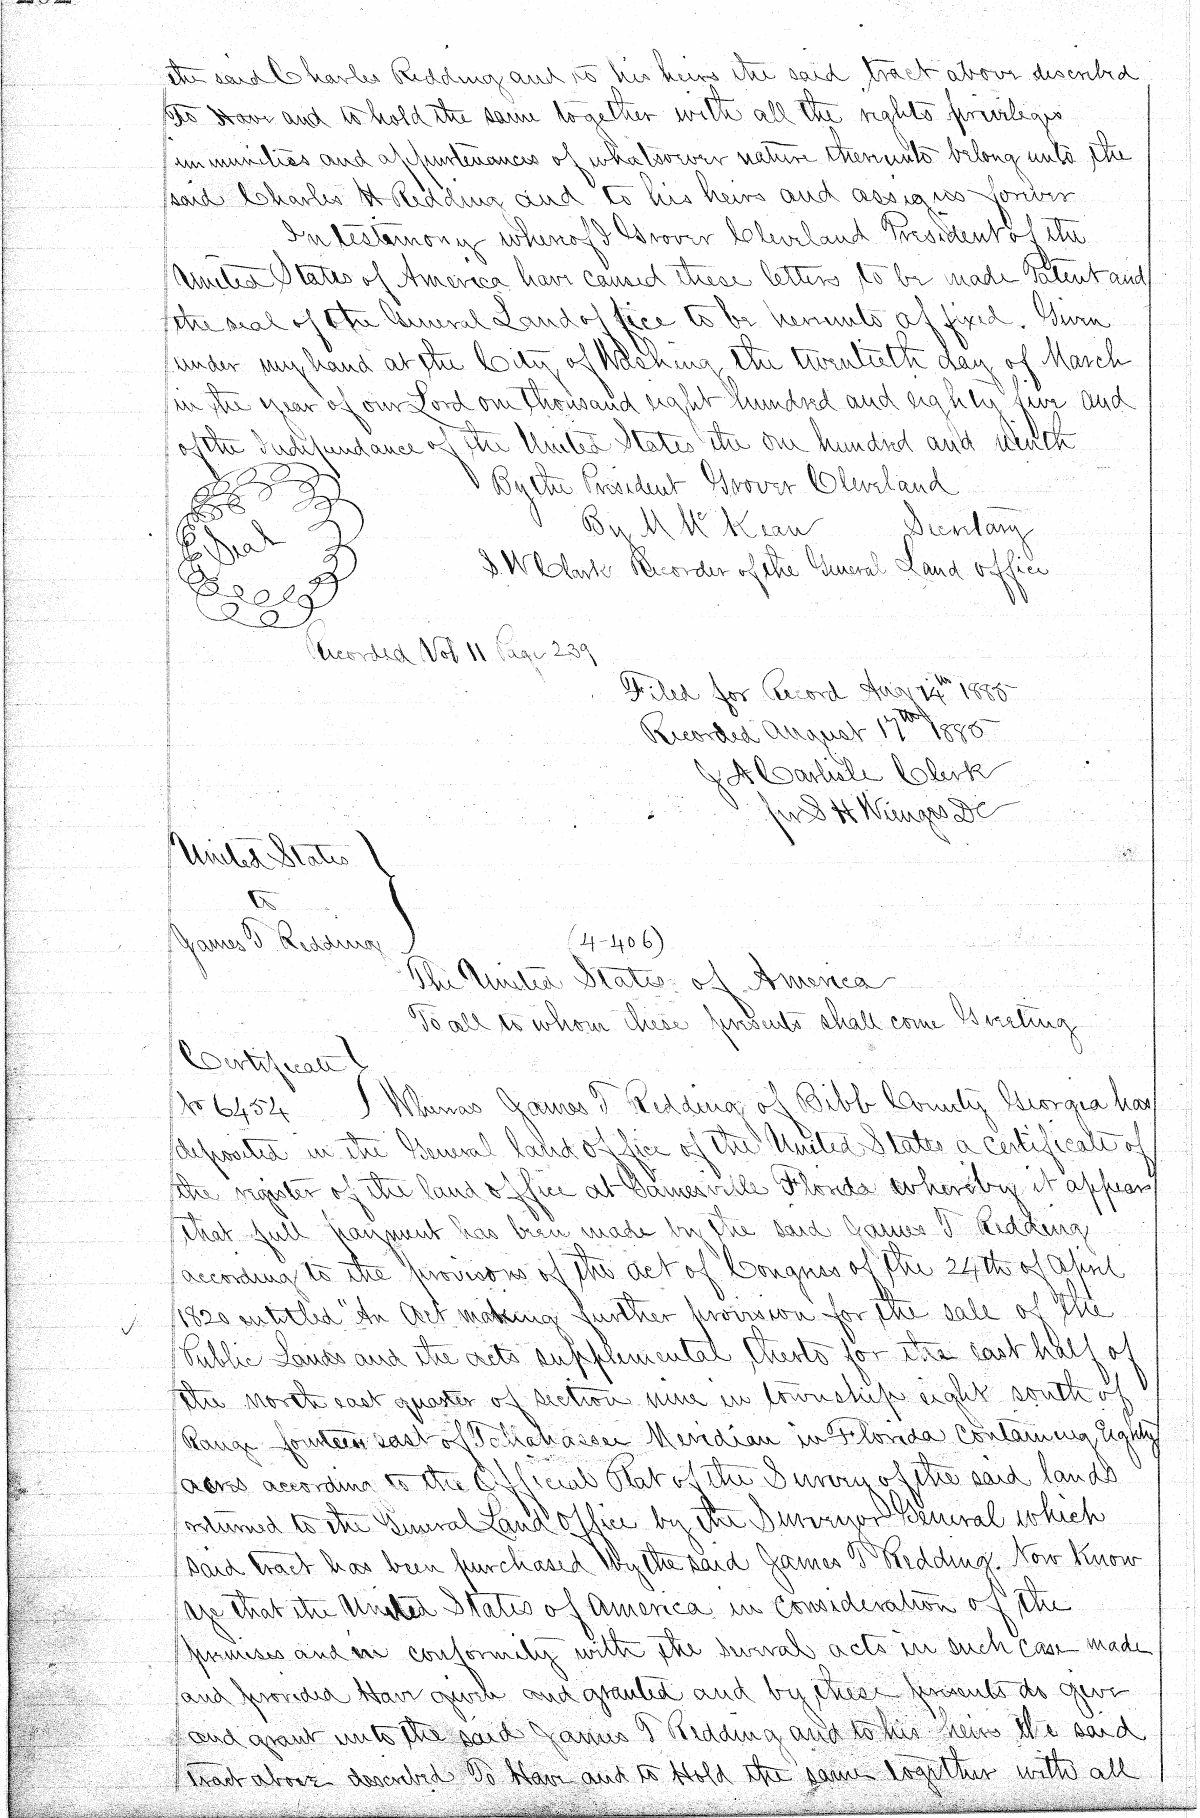 the said Charles Redding and to his heirs the said tract above described
To Have and to hold the same together with all the rights privileges
immunities and appurtenances of whatsoever nature thereunto belong unto the
said Charles H Redding and to his heirs and assigns forever
In testimony whereof I Grover Cleveland President of the
United States of America have caused these letters to be made Patent and
the seal of the General Land office to be hereunto affixed. Given
under my hand at the City of Washing the twentieth day of March
in the year of our Lord one thousand eight hundred and eighty five and
of the Independance of the United States the one hundred and ninth
By the President Grover Cleveland
By M McKean Secretary
Seal
S W Clark Recorder of the General Land office
Recorded Vol 11 Page 239
Filed for Record Aug 14th 1885
Recorded August 17th 1885
J A Carlisle Clerk
per S H Wienges DC
United States
to
James T Redding
(4-406)
The United States of America
To all to whom these presents shall come Greeting
Certificate
No 6454 Whereas James T Redding of Bibb County Georgia has
deposited in the General land office of the United States a certificate of
the register of the land office at Gainesville Florida whereby it appears
that full payment has been made by the said James T Redding
according to the provisons of the act of Congress of the 24th of April
1820 entitled "An Act making further provision for the sale of the
Public Lands and the acts supplemental therto for the east half of
the north east quarter of section nine in township eight south of
Range fourteen east of Tallahassee Meridian in Florida containing Eighty
acres according to the Official Plat of the Survey of the said lands
returned to the General Land Office by the Surveyor General which
said tract has been purchased by the said James T Redding. Now Know
ye that the United States of America in consideration of the
premises and in conformity with the several acts in such case made
and provided Have given and granted and by these presents do give
and grant unto the said James T Redding and to his heirs the said
tract above described To Have and to Hold the same together with all